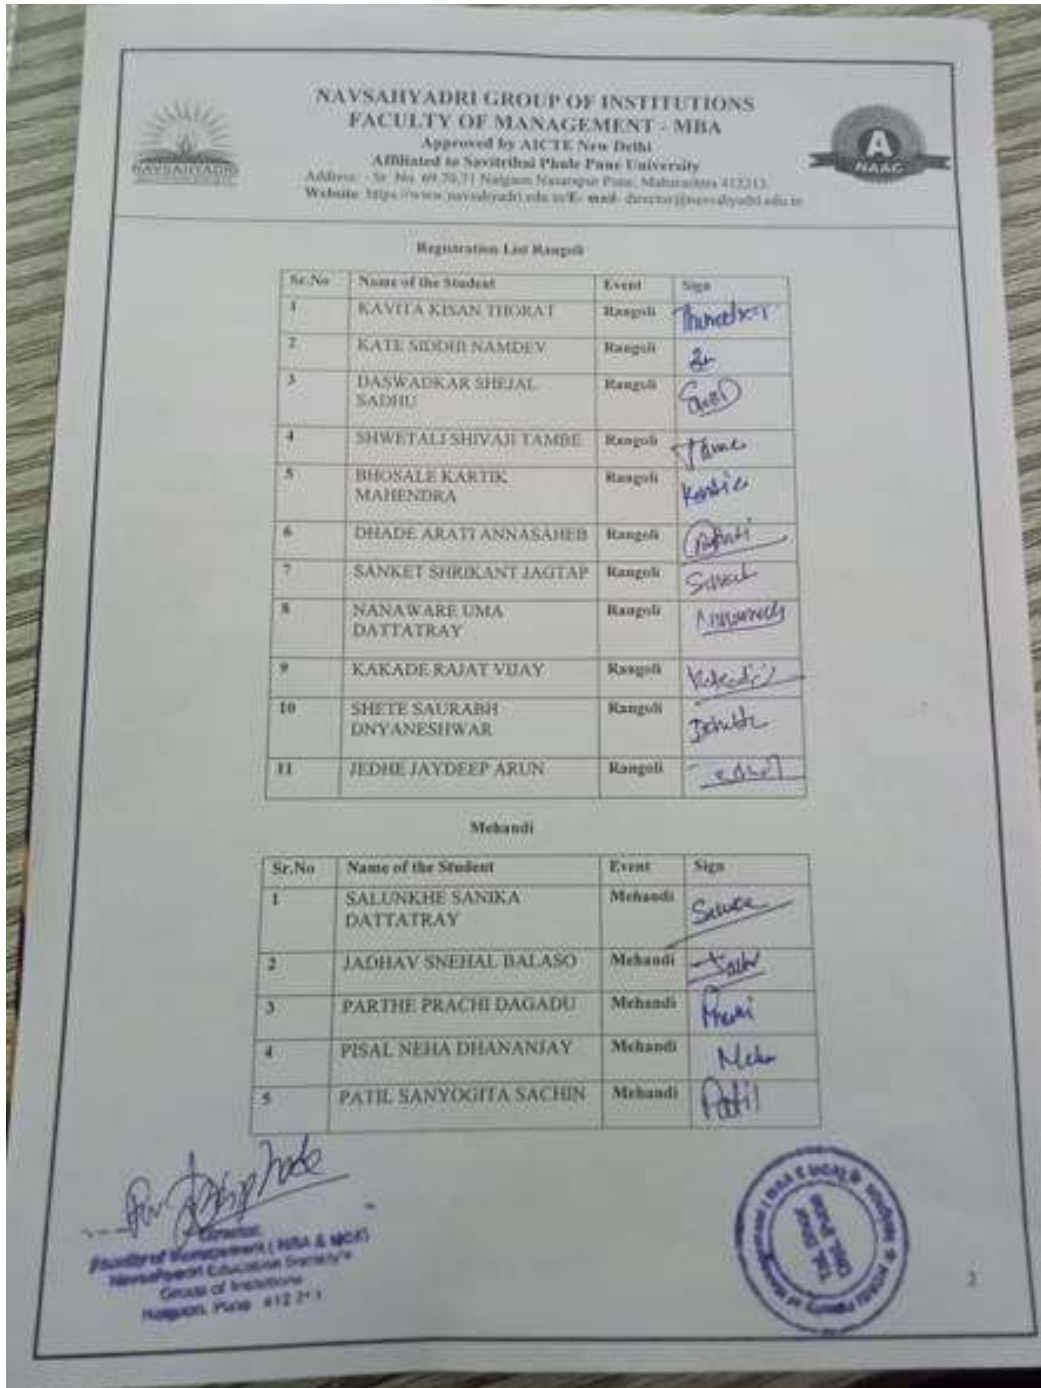 NAVSAHYADRI GROUP OF INSTITUTIONS
FACULTY OF MANAGEMENT - MBA
Approved by AICTE New Delhi
Affiliated to Savitribai Phule Pune University
Address: - Sr. No. 69,70,71 Naigaon Nasarapur Pune, Maharashtra 412213.
Website: https://www.navsahyadri.edu.in/E- mail- director@navsahyadri.edu.in
NAVSAHYADRI
A
NAAC
Registration List Rangoli
Sr.No Name of the Student Event Sign
1 KAVITA KISAN THORAT Rangoli
2 KATE SIDDHI NAMDEV Rangoli
3 DASWADKAR SHEJAL Rangoli
SADHU
4 SHWETALI SHIVAJI TAMBE Rangoli
5 BHOSALE KARTIK Rangoli
MAHENDRA
6 DHADE ARATI ANNASAHEB Rangoli
7 SANKET SHRIKANT JAGTAP Rangoli
8 NANAWARE UMA Rangoli
DATTATRAY
9 KAKADE RAJAT VIJAY Rangoli
10 SHETE SAURABH Rangoli
DNYANESHWAR
11 JEDHE JAYDEEP ARUN Rangoli
Mehandi
Sr.No Name of the Student Event Sign
1 SALUNKHE SANIKA Mehandi
DATTATRAY
2 JADHAV SNEHAL BALASO Mehandi
3 PARTHE PRACHI DAGADU Mehandi
4 PISAL NEHA DHANANJAY Mehandi
5 PATIL SANYOGITA SACHIN Mehandi Patil
Director
Faculty of Management ( MBA & MCA)
Navsahyadri Education Society's
Group of Institutions
Naigaon, Pune 412 213
Tal. Bhor
Dist. Pune
2